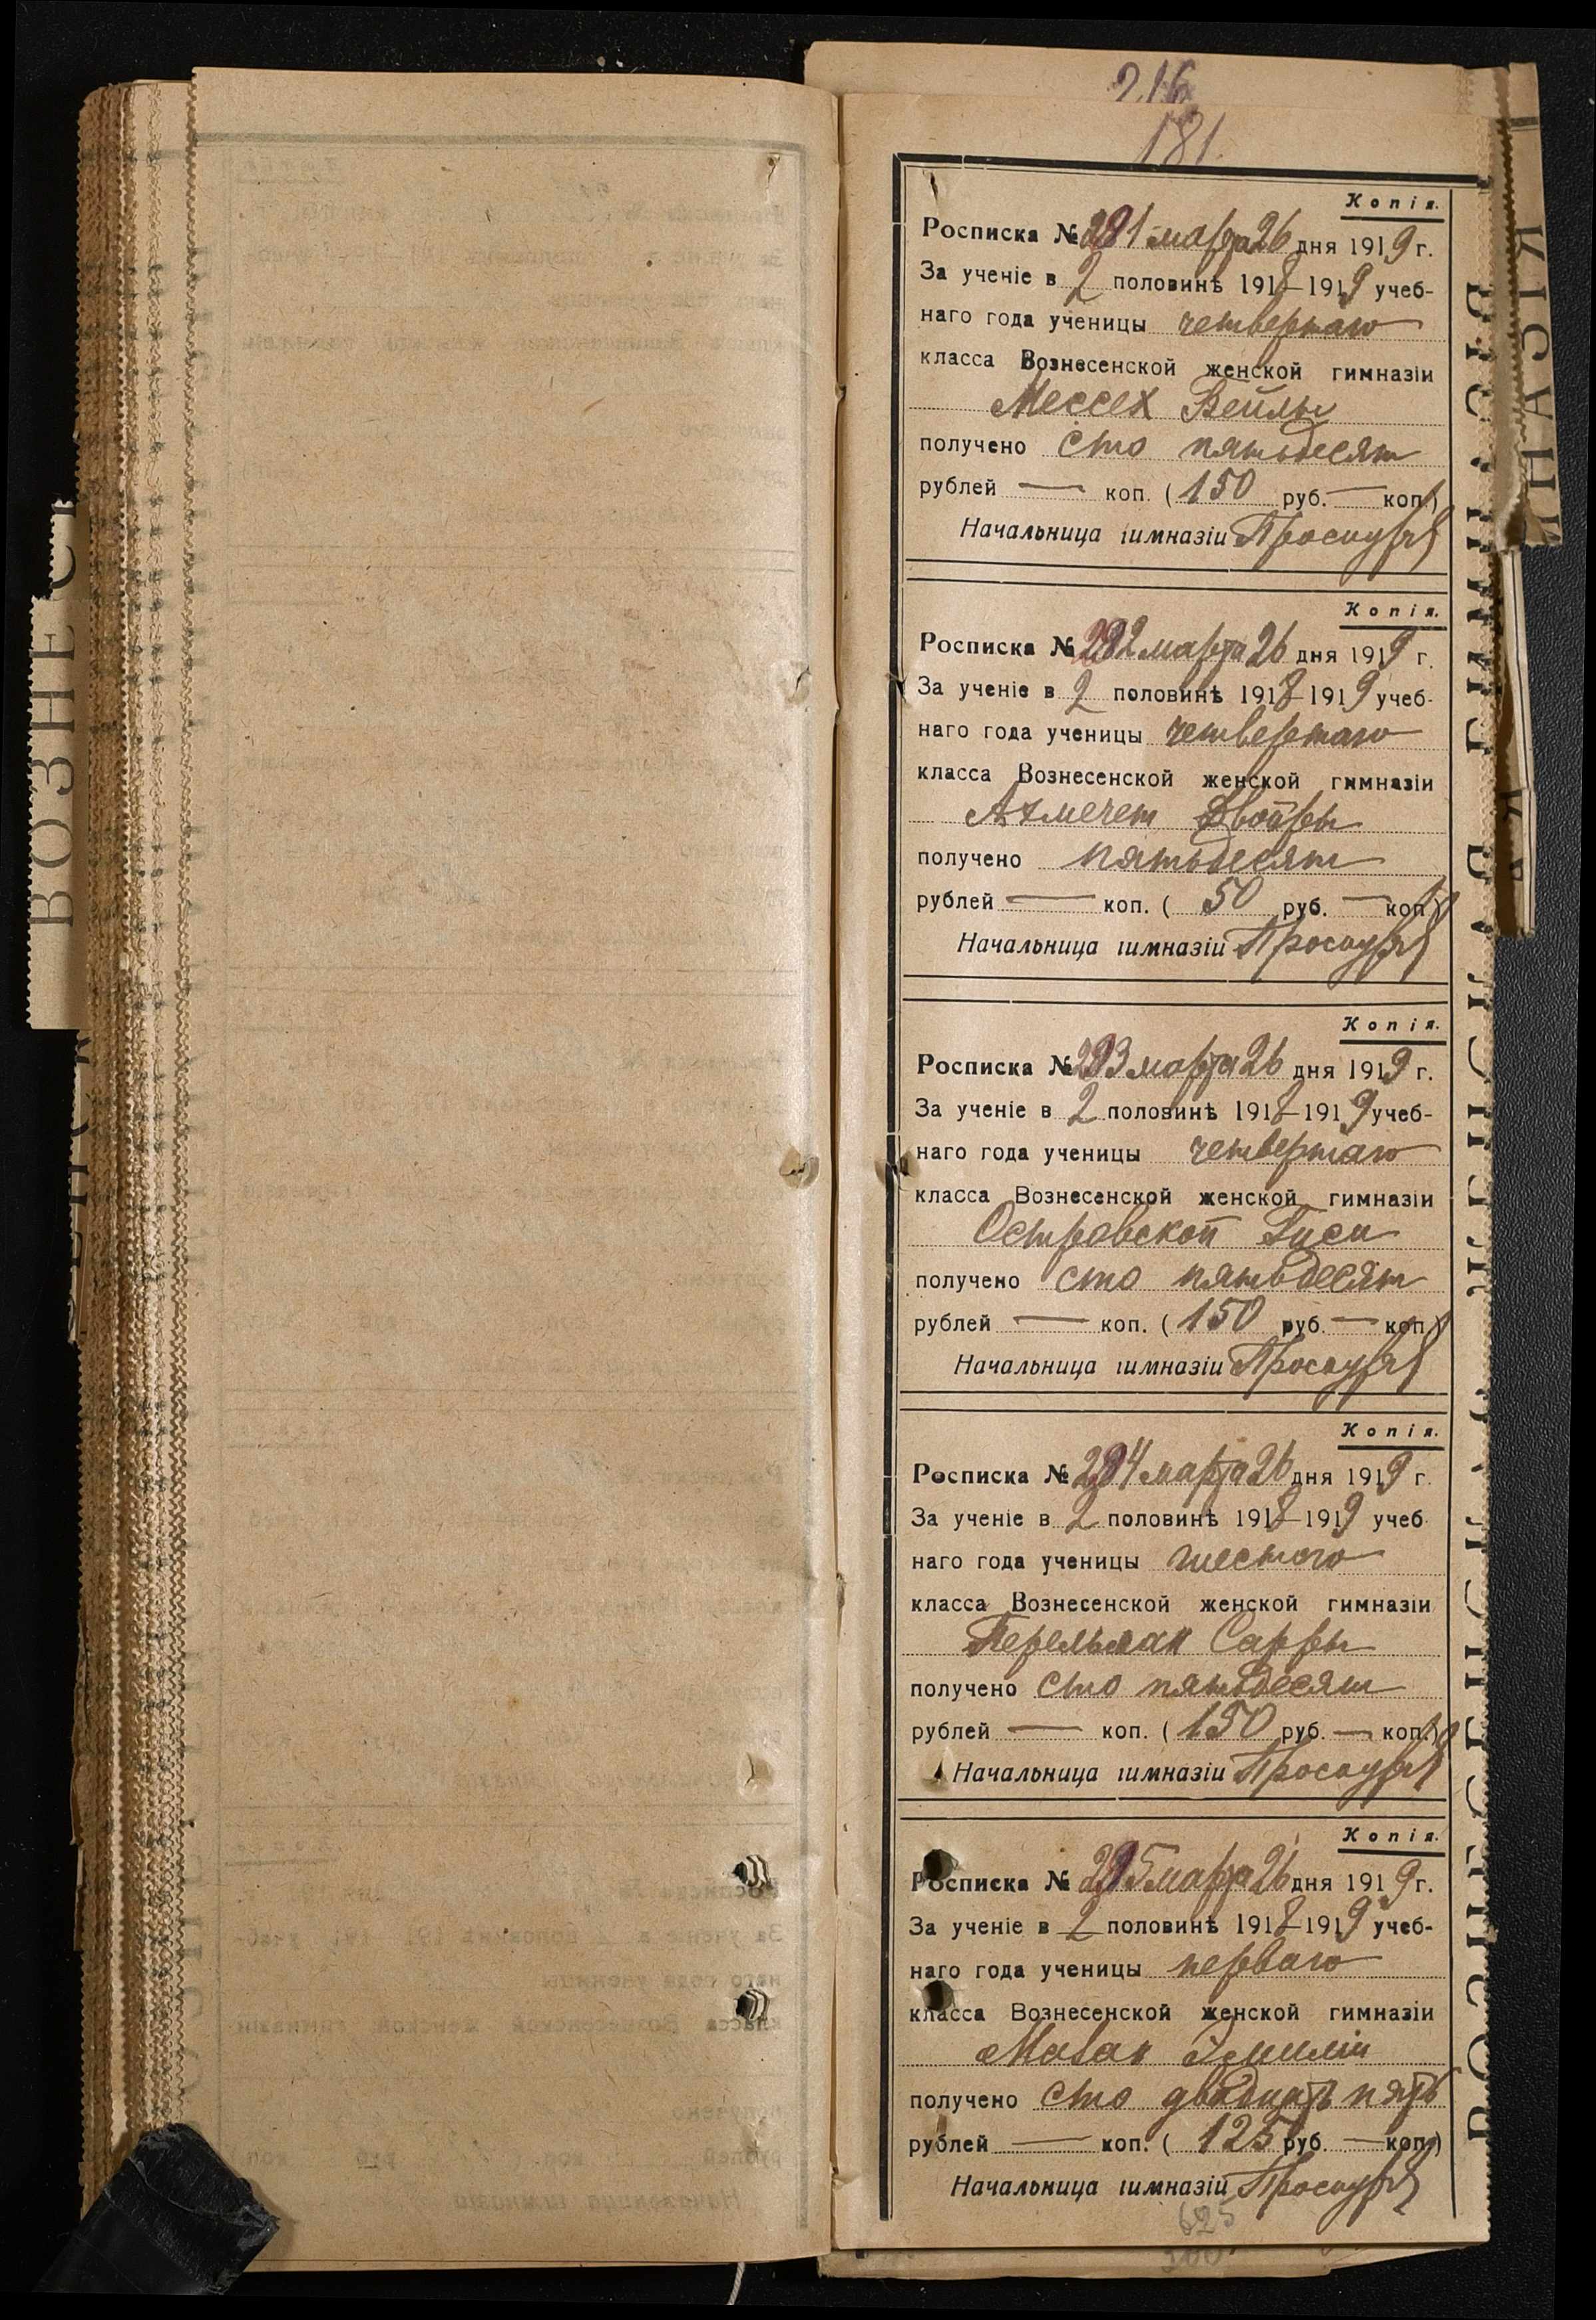 216
181.
Копія.
Росписка № 281 марта 26 дня 1919 г.
За ученіе в 2 половинѣ 1918-1919 учеб-
наго года ученицы четвертаго
класса Вознесенской женской гимназіи
Мессех Бейлы
получено сто пятьдесят
рублей — коп. (150 руб. — коп.)
Начальница гимназіи
Копія.
Росписка № 282 марта 26 дня 1919 г.
За ученіе в 2 половинѣ 1918-1919 учеб-
наго года ученицы четвертаго
класса Вознесенской женской гимназіи
Ахмечет Двойры
получено пятьдесят
рублей — коп. (50 руб. — коп.)
Начальница гимназіи
Копія.
Росписка № 283 марта 26 дня 1919 г.
За ученіе в 2 половинѣ 1918-1919 учеб-
наго года ученицы четвертаго
класса Вознесенской женской гимназіи
Островской Гиси
получено сто пятьдесят
рублей — коп. (150 руб. — коп.)
Начальница гимназіи
Копія.
Росписка № 284 марта 26 дня 1919 г.
За ученіе в 2 половинѣ 1918-1919 учеб
наго года ученицы шестого
класса Вознесенской женской гимназіи
Перельман Сарры
получено сто пятьдесят
рублей — коп. (150 руб. — коп.)
Начальница гимназіи
Копія.
Росписка № 285 марта 26 дня 1919 г.
За ученіе в 2 половинѣ 1918-1919 учеб-
наго года ученицы перваго
класса Вознесенской женской гимназіи
Эмиліи
получено сто двадцать пять
рублей — коп. (125 руб. — коп.)
Начальница гимназіи
625
ВОЗНЕС